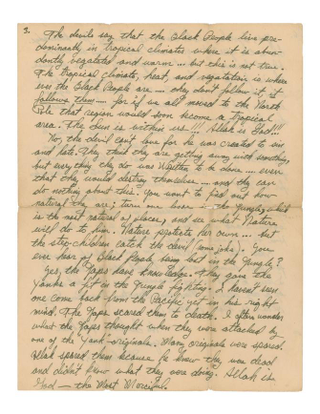 3.
The devils say that the Black People live pre-
dominantly in tropical climates where it is abun-
dantly vegetated and warm... but this is not true.
The tropical climate, heat, and vegetation is where
ever the Black People are — they don't follow it, it
follows them — for if we all moved to the North
Pole that region would soon become a tropical
area. The Sun is within us!!! Allah is God!!!
No, the devil can't love for he was created to sin
and hate. They think they are getting away with something,
but everything they do was Written to be done... even
that they would destroy themselves — and they can
do nothing about this. You want to find out how
natural they are; turn one loose in the Jungle, which
is the most natural of places, and see what Nature
will do to him. Nature protects her own... but
the step-children catch the devil (some joke). You
ever hear of Black People being lost in the Jungle?
Yes, the Japs have knowledge. They gave the
Yanks a fit in the Jungle fighting. I haven't seen
one come back from the Pacific yet in his right
mind. The Japs scared them to death. I often wonder
what the Japs thought when they were attacked by
one of the "Yank" originals. Many originals were spared.
Allah spared them because he knew they were dead
and didn't know what they were doing. Allah is
God — the Most Merciful.